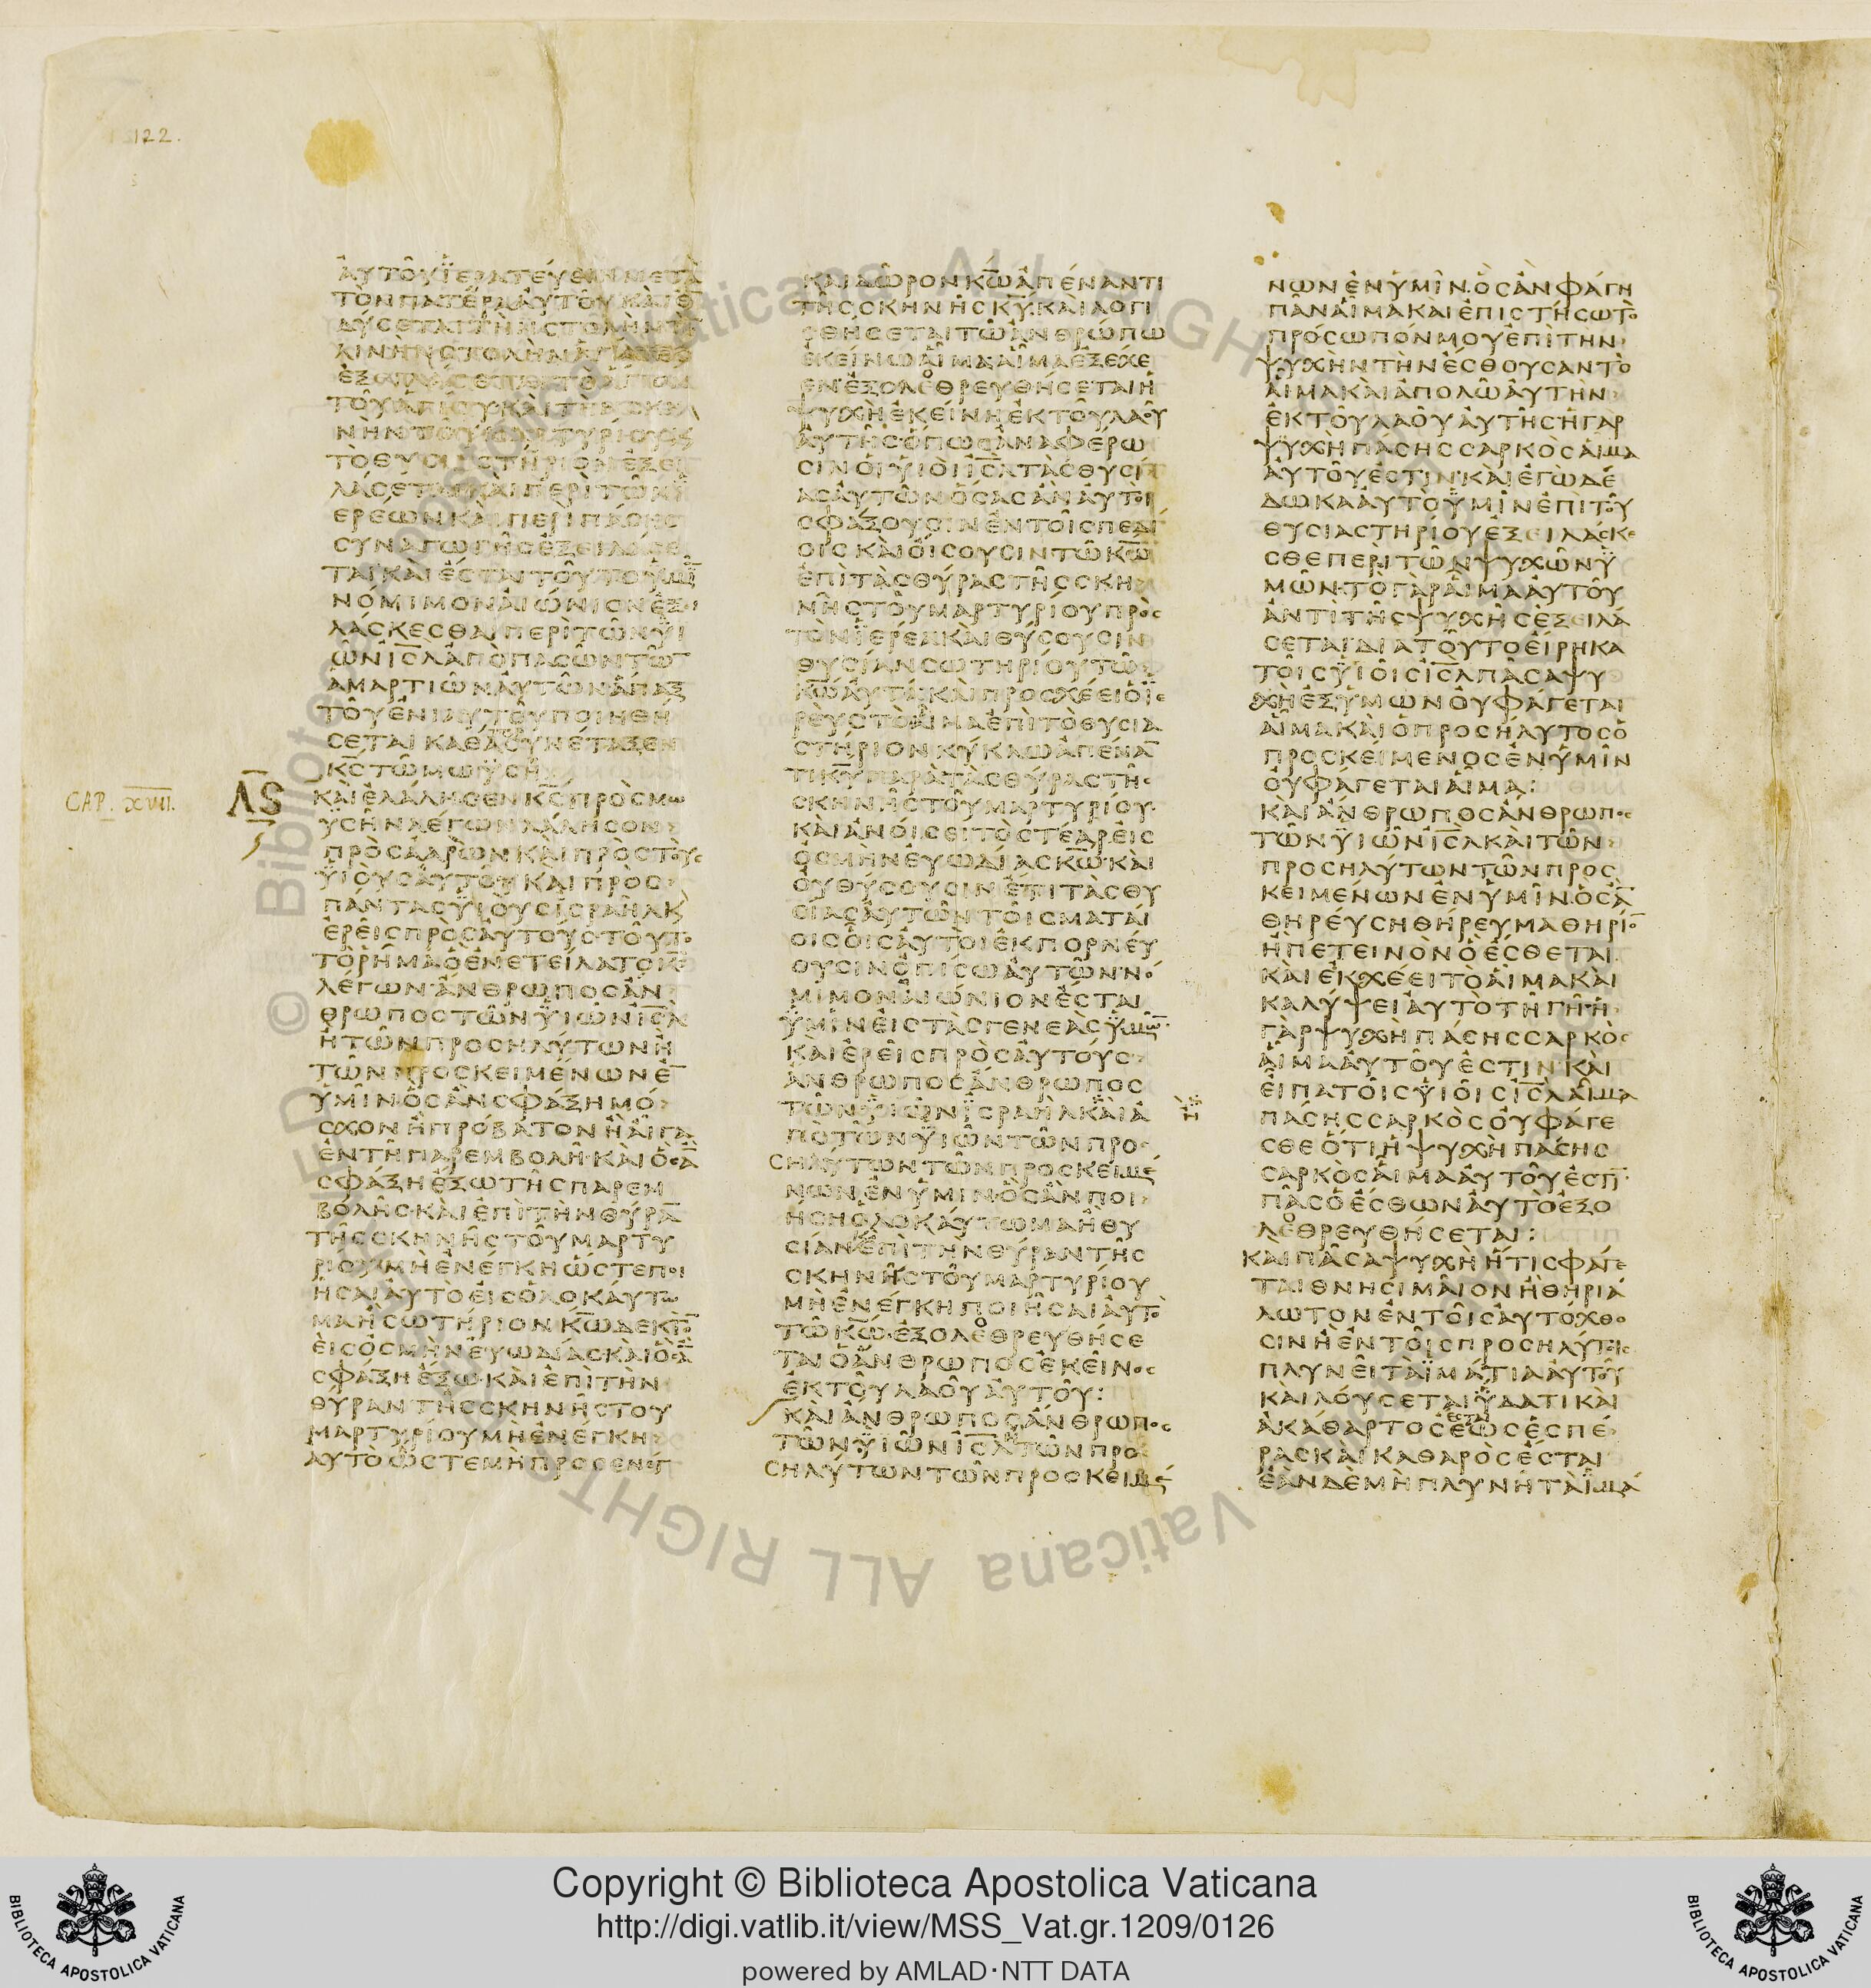 122.
ΑΥΤΟΥΪΕΡΑΤΕΥΕΙΝΜΕΤΑ
ΤΟΝΠΑΤΕΡΑΑΥΤΟΥΚΑΙΕ̅
ΔΥΣΕΤΑΙΤΗΝΣΤΟΛΗΝΤΗ̅
ΛΙΝΗΝΣΤΟΛΗΝΑΓΙΑΝΚΑΙ
ΕΞΙΛΑΣΕΤΑΙΤΟΑΓΙΟΝ
ΤΟΥΑΓΙΟΥΚΑΙΤΗΝΣΚΗ
ΝΗΝΤΟΥΜΑΡΤΥΡΙΟΥΚΑΙ
ΤΟΘΥΣΙΑΣΤΗΡΙΟΝΕΞΕΙ
ΛΑΣΕΤΑΙΚΑΙΠΕΡΙΤΩΝΪ
ΕΡΕΩΝΚΑΙΠΕΡΙΠΑΣΗΣ
ΣΥΝΑΓΩΓΗΣΕΞΕΙΛΑΣΕ
ΤΑΙΚΑΙΕΣΤΑΙΤΟΥΤΟΥΜΙ̅
ΝΟΜΙΜΟΝΑΙΩΝΙΟΝΕΞΙ
ΛΑΣΚΕΣΘΑΙΠΕΡΙΤΩΝΥΙ
ΩΝΙ̅Σ̅Λ̅ΑΠΟΠΑΣΩΝΤΩ̅
ΑΜΑΡΤΙΩΝΑΥΤΩΝΑΠΑΞ
ΤΟΥΕΝΙΑΥΤΟΥΠΟΙΗΘΗ
ΣΕΤΑΙΚΑΘΑΣΥΝΕΤΑΞΕΝ
Κ̅Σ̅ΤΩΜΩΥΣΗ
CAP. XVII.
Λ̅Ϛ̅
ΚΑΙΕΛΑΛΗΣΕΝΚ̅Σ̅ΠΡΟΣΜΩ
ΥΣΗΝΛΕΓΩΝΛΑΛΗΣΟΝ
ΠΡΟΣΑΑΡΩΝΚΑΙΠΡΟΣΤΟΥΣ
ΥΙΟΥΣΑΥΤΟΥΚΑΙΠΡΟΣ
ΠΑΝΤΑΣΥΙΟΥΣΙΣΡΑΗΛΚ
ΕΡΕΙΣΠΡΟΣΑΥΤΟΥΣΤΟΥΤΟ
ΤΟΡΗΜΑΟΕΝΕΤΕΙΛΑΤΟΚ̅Σ̅
ΛΕΓΩΝΑΝΘΡΩΠΟΣΑΝ
ΘΡΩΠΟΣΤΩΝΥΙΩΝΙ̅Σ̅Λ̅
ΗΤΩΝΠΡΟΣΗΛΥΤΩΝΗ
ΤΩΝΠΡΟΣΚΕΙΜΕΝΩΝΕ̅
ΥΜΙΝΟΣΑΝΣΦΑΞΗΜΟ
ΣΧΟΝΗΠΡΟΒΑΤΟΝΗΑΙΓΑ
ΕΝΤΗΠΑΡΕΜΒΟΛΗΚΑΙΟΣΑ̅
ΣΦΑΞΗΕΞΩΤΗΣΠΑΡΕΜ
ΒΟΛΗΣΚΑΙΕΠΙΤΗΝΘΥΡΑ̅
ΤΗΣΣΚΗΝΗΣΤΟΥΜΑΡΤΥ
ΡΙΟΥΜΗΕΝΕΓΚΗΩΣΤΕΠΟΙ
ΗΣΑΙΑΥΤΟΕΙΣΟΛΟΚΑΥΤΩ
ΜΑΗΣΩΤΗΡΙΟΝΚ̅Ω̅ΔΕΚΤΟ̅
ΕΙΣΟΣΜΗΝΕΥΩΔΙΑΣΚΑΙΟΣΑ̅
ΣΦΑΞΗΕΞΩΚΑΙΕΠΙΤΗΝ
ΘΥΡΑΝΤΗΣΣΚΗΝΗΣΤΟΥ
ΜΑΡΤΥΡΙΟΥΜΗΕΝΕΓΚΗ
ΑΥΤΟΩΣΤΕΜΗΠΡΟΣΕΝΕΓ
ΚΑΙΔΩΡΟΝΚ̅Ω̅ΑΠΕΝΑΝΤΙ
ΤΗΣΣΚΗΝΗΣΚ̅Υ̅ΚΑΙΛΟΓΙ
ΣΘΗΣΕΤΑΙΤΩΑΝΘΡΩΠΩ
ΕΚΕΙΝΩΑΙΜΑΑΙΜΑΕΞΕΧΕ
ΕΝΕΞΟΛΕΘΡΕΥΘΗΣΕΤΑΙΗ
ΨΥΧΗΕΚΕΙΝΗΕΚΤΟΥΛΑΟΥ
ΑΥΤΗΣΟΠΩΣΑΝΑΦΕΡΩ
ΣΙΝΟΙΥΙΟΙΙ̅Σ̅Λ̅ΤΑΣΘΥΣΙ
ΑΣΑΥΤΩΝΟΣΑΣΑΝΑΥΤΟΙ
ΣΦΑΞΟΥΣΙΝΕΝΤΟΙΣΠΕΔΙ
ΟΙΣΚΑΙΟΙΣΟΥΣΙΝΤΩΚ̅Ω̅
ΕΠΙΤΑΣΘΥΡΑΣΤΗΣΣΚΗ
ΝΗΣΤΟΥΜΑΡΤΥΡΙΟΥΠΡΟΣ
ΤΟΝΪΕΡΕΑΚΑΙΘΥΣΟΥΣΙΝ
ΘΥΣΙΑΝΣΩΤΗΡΙΟΥΤΩ
Κ̅Ω̅ΑΥΤΑΚΑΙΠΡΟΣΧΕΕΙΟΪΕ
ΡΕΥΣΤΟΑΙΜΑΕΠΙΤΟΘΥΣΙΑ
ΣΤΗΡΙΟΝΚΥΚΛΩΑΠΕΝΑ̅
ΤΙΚ̅Υ̅ΠΑΡΑΤΑΣΘΥΡΑΣΤΗΣ
ΣΚΗΝΗΣΤΟΥΜΑΡΤΥΡΙΟΥ
ΚΑΙΑΝΟΙΣΕΙΤΟΣΤΕΑΡΕΙΣ
ΟΣΜΗΝΕΥΩΔΙΑΣΚ̅Ω̅ΚΑΙ
ΟΥΘΥΣΟΥΣΙΝΕΤΙΤΑΣΘΥ
ΣΙΑΣΑΥΤΩΝΤΟΙΣΜΑΤΑΙ
ΟΙΣΟΙΣΑΥΤΟΙΕΚΠΟΡΝΕΥ
ΟΥΣΙΝΟΠΙΣΩΑΥΤΩΝΝΟ
ΜΙΜΟΝΑΙΩΝΙΟΝΕΣΤΑΙ
ΥΜΙΝΕΙΣΤΑΣΓΕΝΕΑΣΥΜΩ̅
ΚΑΙΕΡΕΙΣΠΡΟΣΑΥΤΟΥΣ
ΑΝΘΡΩΠΟΣΑΝΘΡΩΠΟΣ
ΤΩΝΥΙΩΝΙΣΡΑΗΛΚΑΙΑ
ΠΟΤΩΝΥΙΩΝΤΩΝΠΡΟ
ΣΗΛΥΤΩΝΤΩΝΠΡΟΣΚΕΙΜΕ
ΝΩΝΕΝΥΜΙΝΟΣΑΝΠΟΙ
ΗΣΗΟΛΟΚΑΥΤΩΜΑΗΘΥ
ΣΙΑΝΕΠΙΤΗΝΘΥΡΑΝΤΗΣ
ΣΚΗΝΗΣΤΟΥΜΑΡΤΥΡΙΟΥ
ΜΗΕΝΕΓΚΗΠΟΙΗΣΑΙΑΥΤΟ
ΤΩΚ̅Ω̅ΕΞΟΛΕΘΡΕΥΘΗΣΕ
ΤΑΙΟΑΝΘΡΩΠΟΣΕΚΕΙΝΟΣ
ΕΚΤΟΥΛΑΟΥΑΥΤΟΥ:
ΚΑΙΑΝΘΡΩΠΟΣΑΝΘΡΩΠΟΣ
ΤΩΝΥΙΩΝΙ̅Σ̅Λ̅ΤΩΝΠΡΟ
ΣΗΛΥΤΩΝΤΩΝΠΡΟΣΚΕΙΜΕ
ΝΩΝΕΝΥΜΙΝΟΣΑΝΦΑΓΗ
ΠΑΝΑΙΜΑΚΑΙΕΠΙΣΤΗΣΩΤΟ
ΠΡΟΣΩΠΟΝΜΟΥΕΠΙΤΗΝ
ΨΥΧΗΝΤΗΝΕΣΘΟΥΣΑΝΤΟ
ΑΙΜΑΚΑΙΑΠΟΛΩΑΥΤΗΝ
ΕΚΤΟΥΛΑΟΥΑΥΤΗΣΗΓΑΡ
ΨΥΧΗΠΑΣΗΣΣΑΡΚΟΣΑΙΜΑ
ΑΥΤΟΥΕΣΤΙΝΚΑΙΕΓΩΔΕ
ΔΩΚΑΑΥΤΟΥΜΙΝΕΠΙΤΟΥ
ΘΥΣΙΑΣΤΗΡΙΟΥΕΞΕΙΛΑΣΚΕ
ΣΘΕΠΕΡΙΤΩΝΨΥΧΩΝΥ
ΜΩΝΤΟΓΑΡΑΙΜΑΑΥΤΟΥ
ΑΝΤΙΤΗΣΨΥΧΗΣΕΞΕΙΛΑ
ΣΕΤΑΙΔΙΑΤΟΥΤΟΕΙΡΗΚΑ
ΤΟΙΣΥΙΟΙΣΙ̅Σ̅Λ̅ΠΑΣΑΨΥ
ΧΗΕΞΥΜΩΝΟΥΦΑΓΕΤΑΙ
ΑΙΜΑΚΑΙΟΠΡΟΣΗΛΥΤΟΣΟ
ΠΡΟΣΚΕΙΜΕΝΟΣΕΝΥΜΙΝ
ΟΥΦΑΓΕΤΑΙΑΙΜΑ:
ΚΑΙΑΝΘΡΩΠΟΣΑΝΘΡΩΠΟΣ
ΤΩΝΥΙΩΝΙ̅Σ̅Λ̅ΚΑΙΤΩΝ
ΠΡΟΣΗΛΥΤΩΝΤΩΝΠΡΟΣ
ΚΕΙΜΕΝΩΝΕΝΥΜΙΝΟΣΑ̅
ΘΗΡΕΥΣΗΘΗΡΕΥΜΑΘΗΡΙΟ̅
ΗΠΕΤΕΙΝΟΝΟΕΣΘΕΤΑΙ
ΚΑΙΕΚΧΕΕΙΤΟΑΙΜΑΚΑΙ
ΚΑΛΥΨΕΙΑΥΤΟΤΗΓΗΗ
ΓΑΡΨΥΧΗΠΑΣΗΣΣΑΡΚΟΣ
ΑΙΜΑΑΥΤΟΥΕΣΤΙΝΚΑΙ
ΕΙΠΑΤΟΙΣΥΙΟΙΣΙ̅Σ̅Λ̅ΑΙΜΑ
ΠΑΣΗΣΣΑΡΚΟΣΟΥΦΑΓΕ
ΣΘΕΟΤΙΗΨΥΧΗΠΑΣΗΣ
ΣΑΡΚΟΣΑΙΜΑΑΥΤΟΥΕΣΤΙ̅
ΠΑΣΟΕΣΘΩΝΑΥΤΟΕΞΟ
ΛΕΘΡΕΥΘΗΣΕΤΑΙ:
ΚΑΙΠΑΣΑΨΥΧΗΗΤΙΣΦΑΓΕ
ΤΑΙΘΝΗΣΙΜΑΙΟΝΗΘΗΡΙΑ
ΛΩΤΟΝΕΝΤΟΙΣΑΥΤΟΧΘΟ
ΣΙΝΗΕΝΤΟΙΣΠΡΟΣΗΛΥΤΟΙΣ
ΠΛΥΝΕΙΤΑΪΜΑΤΙΑΑΥΤΟΥ
ΚΑΙΛΟΥΣΕΤΑΙΥΔΑΤΙΚΑΙ
ΑΚΑΘΑΡΤΟΣΕΩΣΕΣΠΕ
ΡΑΣΚΑΙΚΑΘΑΡΟΣΕΣΤΑΙ
ΕΑΝΔΕΜΗΠΛΥΝΗΤΑΪΜΑ
Copyright © Biblioteca Apostolica Vaticana
http://digi.vatlib.it/view/MSS_Vat.gr.1209/0126
powered by AMLAD·NTT DATA
BIBLIOTECA APOSTOLICA VATICANA
BIBLIOTECA APOSTOLICA VATICANA